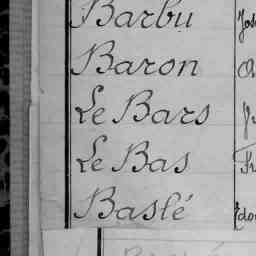 Barbu
Baron
Le Bars
Le Bas
Baslé